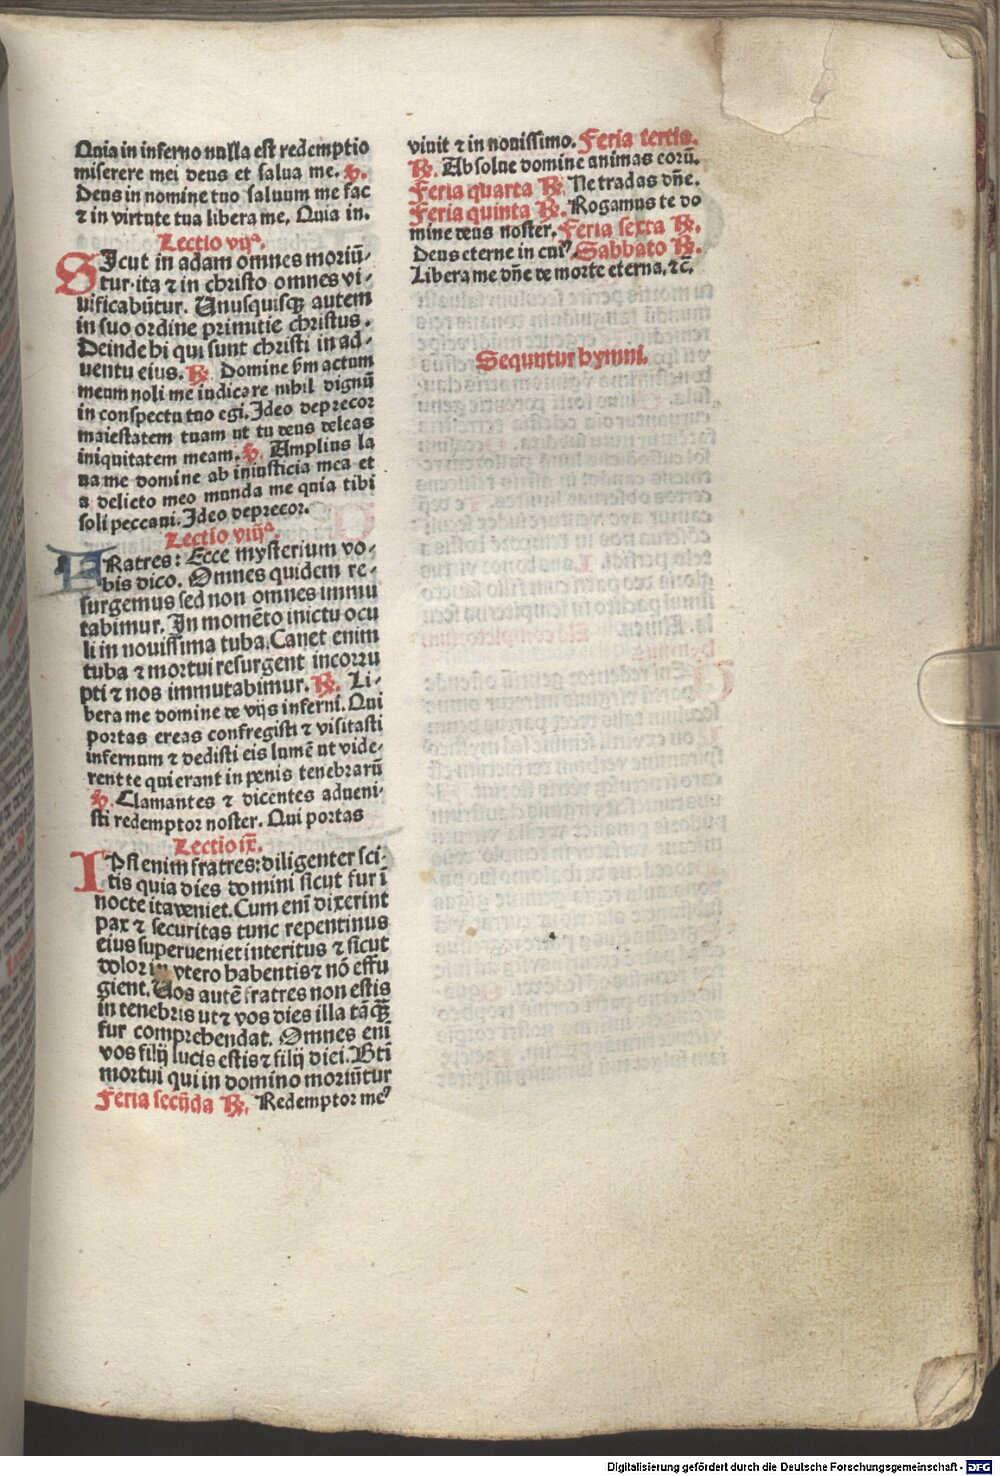 Quia in inferno nulla est redemptio
miserere mei deus et salua me. ℣.
Deus in nomine tuo saluum me fac
⁊ in virtute tua libera me. Quia in.
Lectio vijª.
SIcut in adam omnes moriũ-
tur·ita ⁊ in christo omnes vi-
uificabũtur. Unusquisqꝫ autem
in suo ordine primitie christus.
Deinde hi qui sunt christi in ad-
uentu eius. ℟. Domine ẜm actum
meum noli me iudicare nihil dignũ
in conspectu tuo egi. Ideo deprecor
maiestatem tuam ut tu deus deleas
iniquitatem meam. ℣. Amplius la
ua me domine ab iniusticia mea et
a delicto meo munda me quia tibi
soli peccaui. Ideo deprecor.
Lectio viijª.
FRatres: Ecce mysterium vo-
bis dico. Omnes quidem re-
surgemus sed non omnes immu
tabimur. In momẽto in ictu ocu
li in nouissima tuba. Canet enim
tuba ⁊ mortui resurgent incorru
pti ⁊ nos immutabimur. ℟. Li-
bera me domine de vijs inferni. Qui
portas ereas confregisti ⁊ visitasti
infernum ⁊ dedisti eis lumẽ ut vide-
rent te qui erant in penis tenebrarũ
℣. Clamantes ⁊ dicentes adueni-
sti redemptor noster. Qui portas
Lectio ix̃.
IPsi enim fratres: diligenter sci-
tis quia dies domini sicut fur ĩ
nocte ita veniet. Cum enĩ dixerint
pax ⁊ securitas tunc repentinus
eius superueniet interitus ⁊ sicut
dolor in vtero habentis ⁊ nõ effu
gient. Uos autẽ fratres non estis
in tenebris ut ⁊ vos dies illa tãqꝫ
fur comprehendat. Omnes enĩ
vos filij lucis estis ⁊ filij diei. Bti
mortui qui in domino moriũtur
Feria secũda ℟. Redemptor meꝰ
viuit ⁊ in nouissimo. Feria tertia.
℟. Absolue domine animas eorũ.
Feria quarta ℟. Ne tradas dñe.
Feria quinta ℟. Rogamus te do
mine deus noster. Feria sexta ℟.
Deus eterne in cuiꝰ Sabbato ℟.
Libera me dñe de morte eterna. ⁊c̃.
Sequntur hymni.
Digitalisierung gefördert durch die Deutsche Forschungsgemeinschaft - DFG